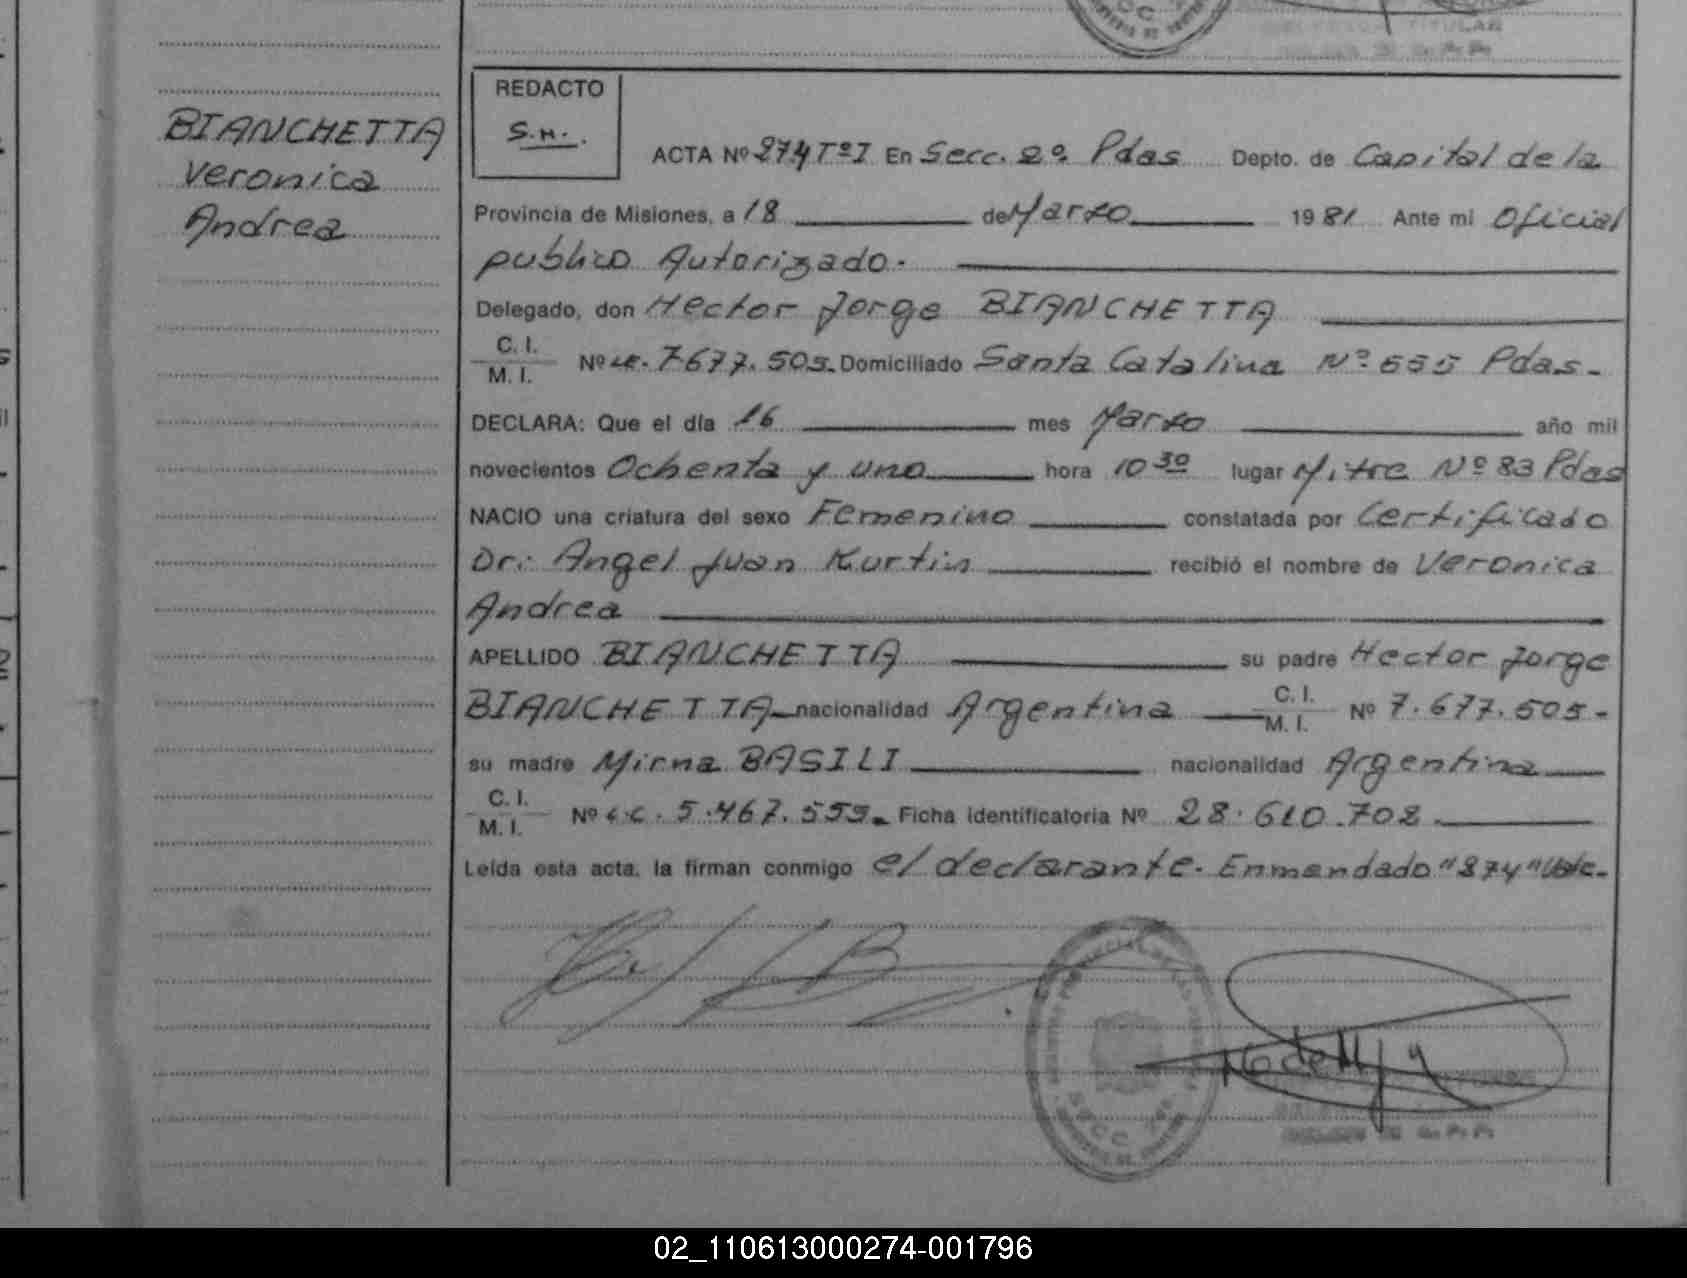 TITULAR
BIANCHETTA
Veronica
Andrea
REDACTO
S.M.
ACTA Nº 274 Tº I En Secc. 2º. Pdas Depto. de Capital de la
Provincia de Misiones, a 18 de Marzo 1981 Ante mi Oficial
publico Autorizado.
Delegado, don Hector Jorge BIANCHETTA
C. I.
M. I. Nº LE. 7.677.505. Domiciliado Santa Catalina Nº 555 Pdas.
DECLARA: Que el día 16 mes Marzo año mil
novecientos Ochenta y uno hora 10 30 lugar Mitre Nº 83 Pdas
NACIO una criatura del sexo Femenino constatada por Certificado
Dr: Angel Juan Kurtin recibió el nombre de Veronica
Andrea
APELLIDO BIANCHETTA su padre Hector Jorge
BIANCHETTA nacionalidad Argentina C. I. M. I. Nº 7.677.505.
su madre Mirna BASILI nacionalidad Argentina
C. I.
M. I. Nº L.C. 5.467.559. Ficha identificatoria Nº 28.610.702.
Leída esta acta, la firman conmigo el declarante. Enmendado "274" Vale.
SECC.
02_110613000274-001796